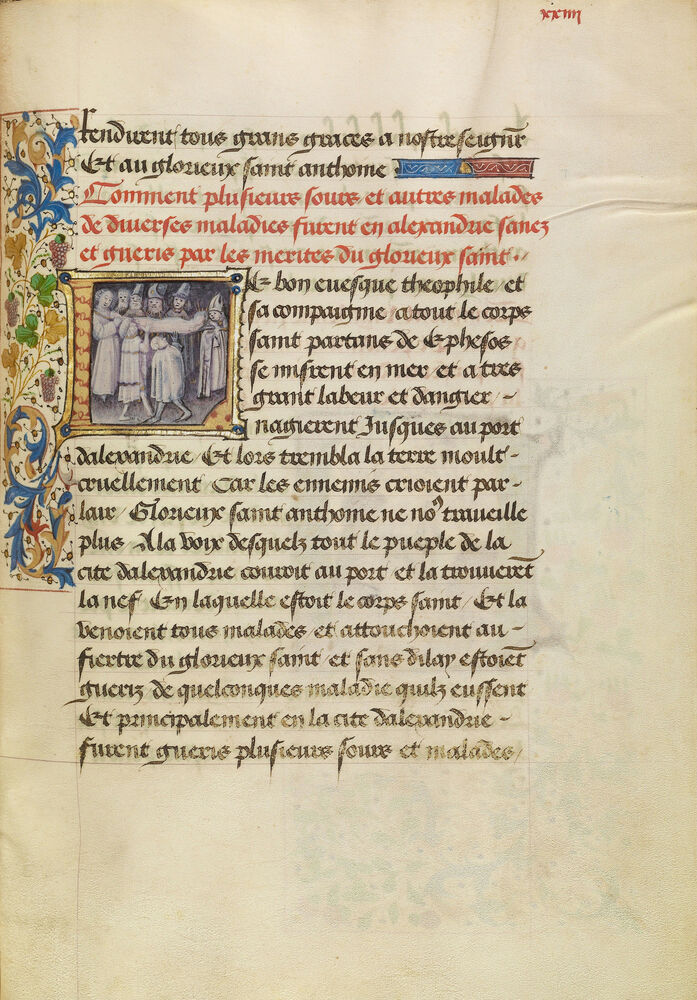 xxiiii
Rendirent tous grans graces a nostre seigneur
Et au glorieux saint anthoine
Comment plusieurs sours et autres malades
de diverses maladies furent en alexandrie sanez
et gueris par les merites du glorieux saint .
Le bon evesque theophile / et
sa compaignie / a tout le corps
saint partans de Ephesos /
se misrent en mer et a tres
grant labeur et dangier / -
nagierent Jusques au port
dalexandrie / Et lors trembla la terre moult -
cruellement / Car les ennemis crioient par -
lair / Glorieux saint anthoine ne noꝰ traveille
plus / A la voix desquelz tout le pueple de la
cite dalexandrie couroit au port / et la trouverēt
la nef / En laquelle estoit le corps saint / Et la
venoient tous malades / et attouchoient au -
fiertre du glorieux saint / et sans dilay estoiēt
gueriz de quelconques maladie quilz eussent
Et principalement en la cite dalexandrie -
furent gueris plusieurs sours et malades /